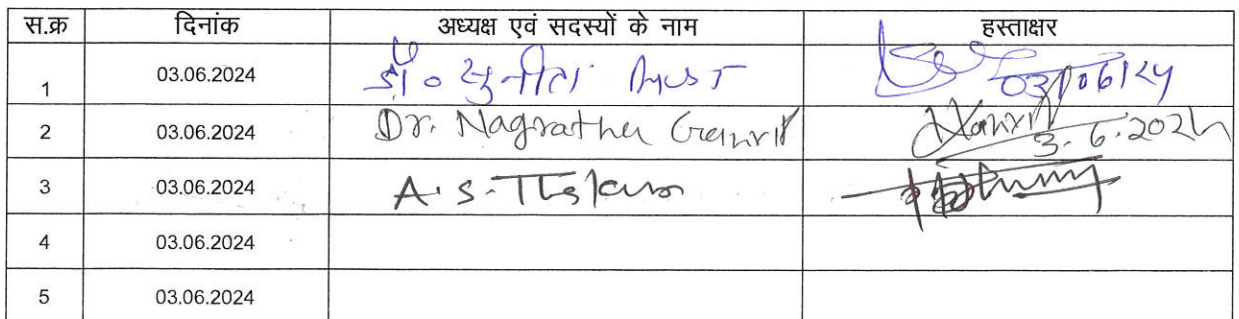 स.क्र दिनांक अध्यक्ष एवं सदस्यों के नाम हस्ताक्षर
1 03.06.2024 डॉ० सुनीता 03/06/24
2 03.06.2024 Dr. Nagratna 3.6.2024
3 03.06.2024 A.S.
4 03.06.2024
5 03.06.2024